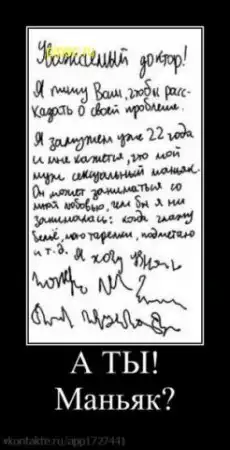 Уважаемый доктор!
Я пишу Вам, чтобы рас-
казать о своей проблеме.
Я замужем уже 22 года
и мне кажется, что мой
муж сексуальный маньяк.
Он может заниматься со
мной любовью, чем бы я ни
занималась: когда глажу
бельё, мою тарелки, подметаю
и т.д. Я хочу
А ТЫ!
Маньяк?
vkontakte.ru/app1727441